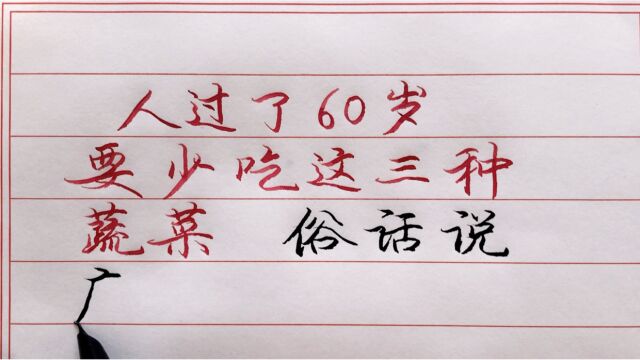 人过了60岁
要少吃这三种
蔬菜 俗话说